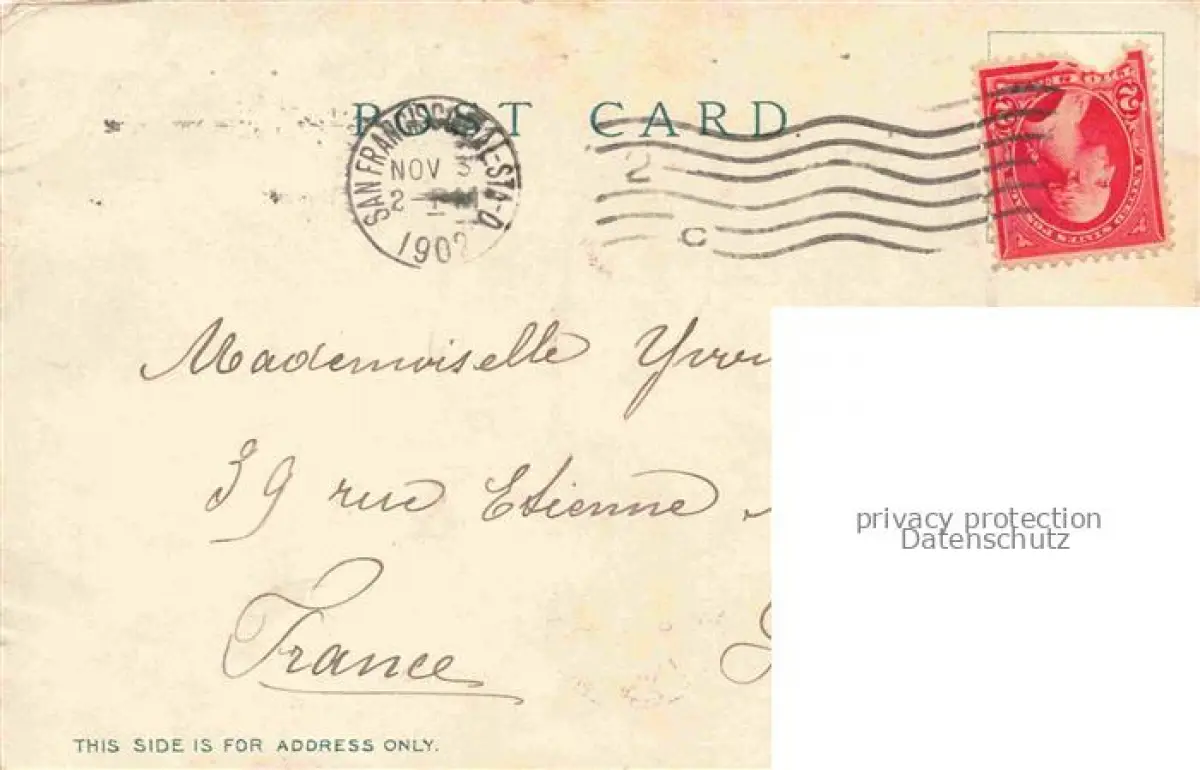 POST CARD
SAN FRANCISCO, CAL-STA-
NOV 3
2-
1902
2
C
2 2
UNITED STATES
Mademoiselle
39 rue Etienne
France
privacy protection
Datenschutz
THIS SIDE IS FOR ADDRESS ONLY.